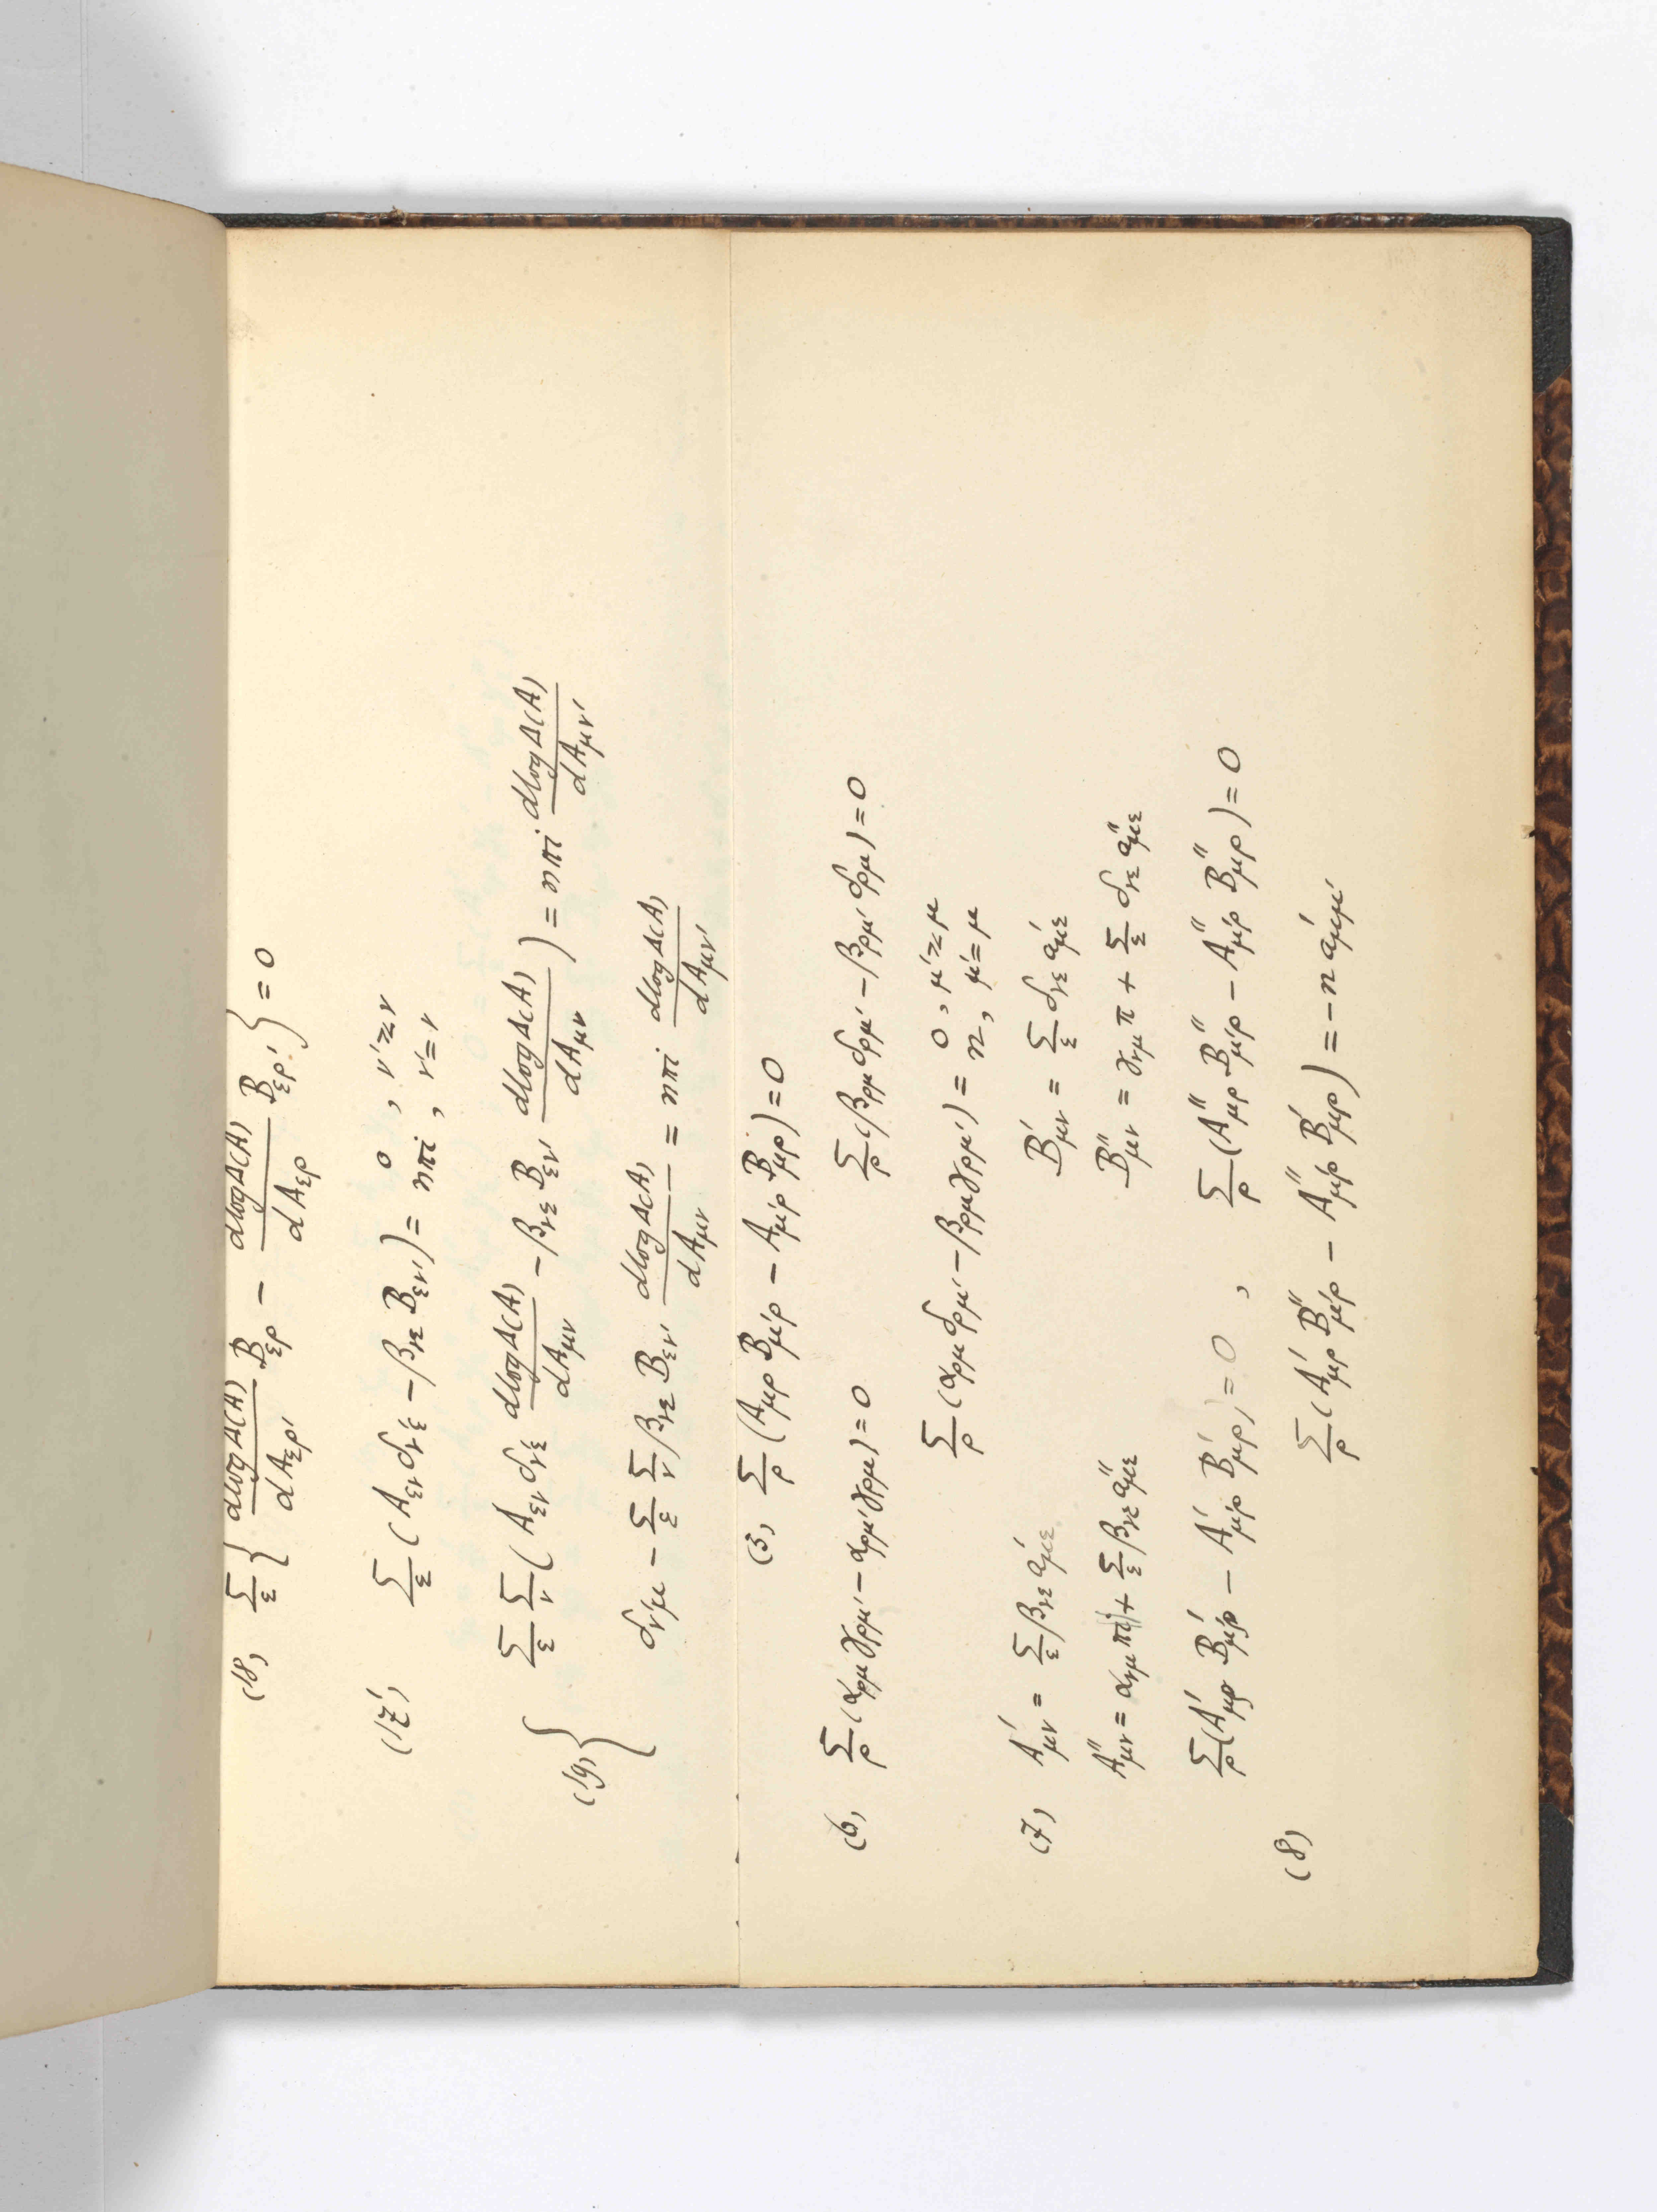 (18) \sum_ε { \frac{d log Δ(A)}{dA_{ερ'}} B_{ερ} − \frac{d log Δ(A)}{dA_{ερ}} B_{ερ'} } = 0
(17') \sum_ε (A_{εν} δ_{ν'ε} − β_{νε} B_{εν'}) = 0, ν' ≷ ν
nπi, ν' = ν
(19) { \sum_ε \sum_ν (A_{εν} δ_{ν'ε} \frac{d log Δ(A)}{dA_{μν}} − β_{νε} B_{εν'} \frac{d log Δ(A)}{dA_{μν}}) = nπi \frac{d log Δ(A)}{dA_{μν'}}
δ_{ν'μ} − \sum_ε \sum_ν β_{νε} B_{εν'} \frac{d log Δ(A)}{dA_{μν}} = nπi \frac{d log Δ(A)}{dA_{μν'}}
(3) \sum_ρ (A_{μρ} B_{μ'ρ} − A_{μ'ρ} B_{μρ}) = 0
(6) \sum_ρ (α_{ρμ} γ_{ρμ'} − α_{ρμ'} γ_{ρμ}) = 0 \sum_ρ (β_{ρμ} δ_{ρμ'} − β_{ρμ'} δ_{ρμ}) = 0
\sum_ρ (α_{ρμ} δ_{ρμ'} − β_{ρμ} γ_{ρμ'}) = 0, μ' ≷ μ
n, μ' = μ
(7) A'_{μν} = \sum_ε β_{νε} a'_{με} B'_{μν} = \sum_ε δ_{νε} a'_{με}
A''_{μν} = α_{νμ} π + \sum_ε β_{νε} a''_{με} B''_{μν} = γ_{νμ} π + \sum_ε δ_{νε} a''_{με}
\sum_ρ (A'_{μρ} B'_{μ'ρ} − A'_{μ'ρ} B'_{μρ}) = 0, \sum_ρ (A''_{μρ} B''_{μ'ρ} − A''_{μ'ρ} B''_{μρ}) = 0
(8) \sum_ρ (A'_{μρ} B''_{μ'ρ} − A''_{μ'ρ} B'_{μρ}) = − n a'_{μμ'}